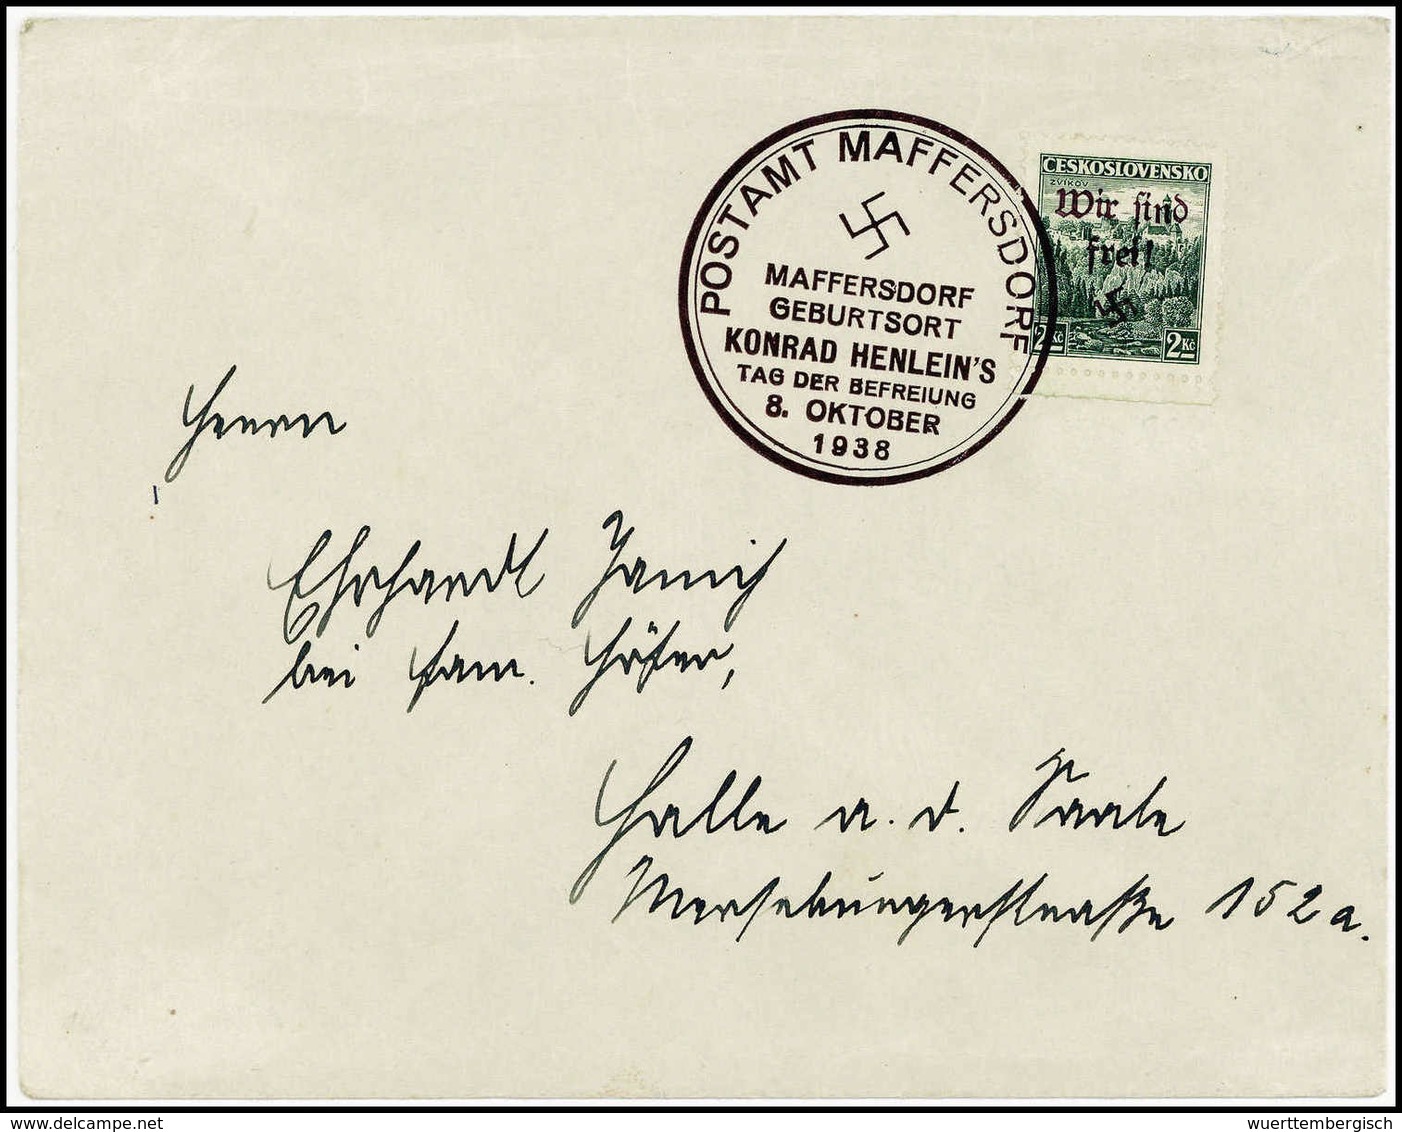 POSTAMT MAFFERSDORF
MAFFERSDORF
GEBURTSORT
KONRAD HENLEIN'S
TAG DER BEFREIUNG
8. OKTOBER
1938
CESKOSLOVENSKO
ZVÍKOV
Wir sind
frei!
2Kč 2Kč
Herrn
Ehrhardt
bei Fam. Höfer,
Halle a. d. Saale
Merseburgerstraße 152a.
delcampe.net
wuerttembergisch